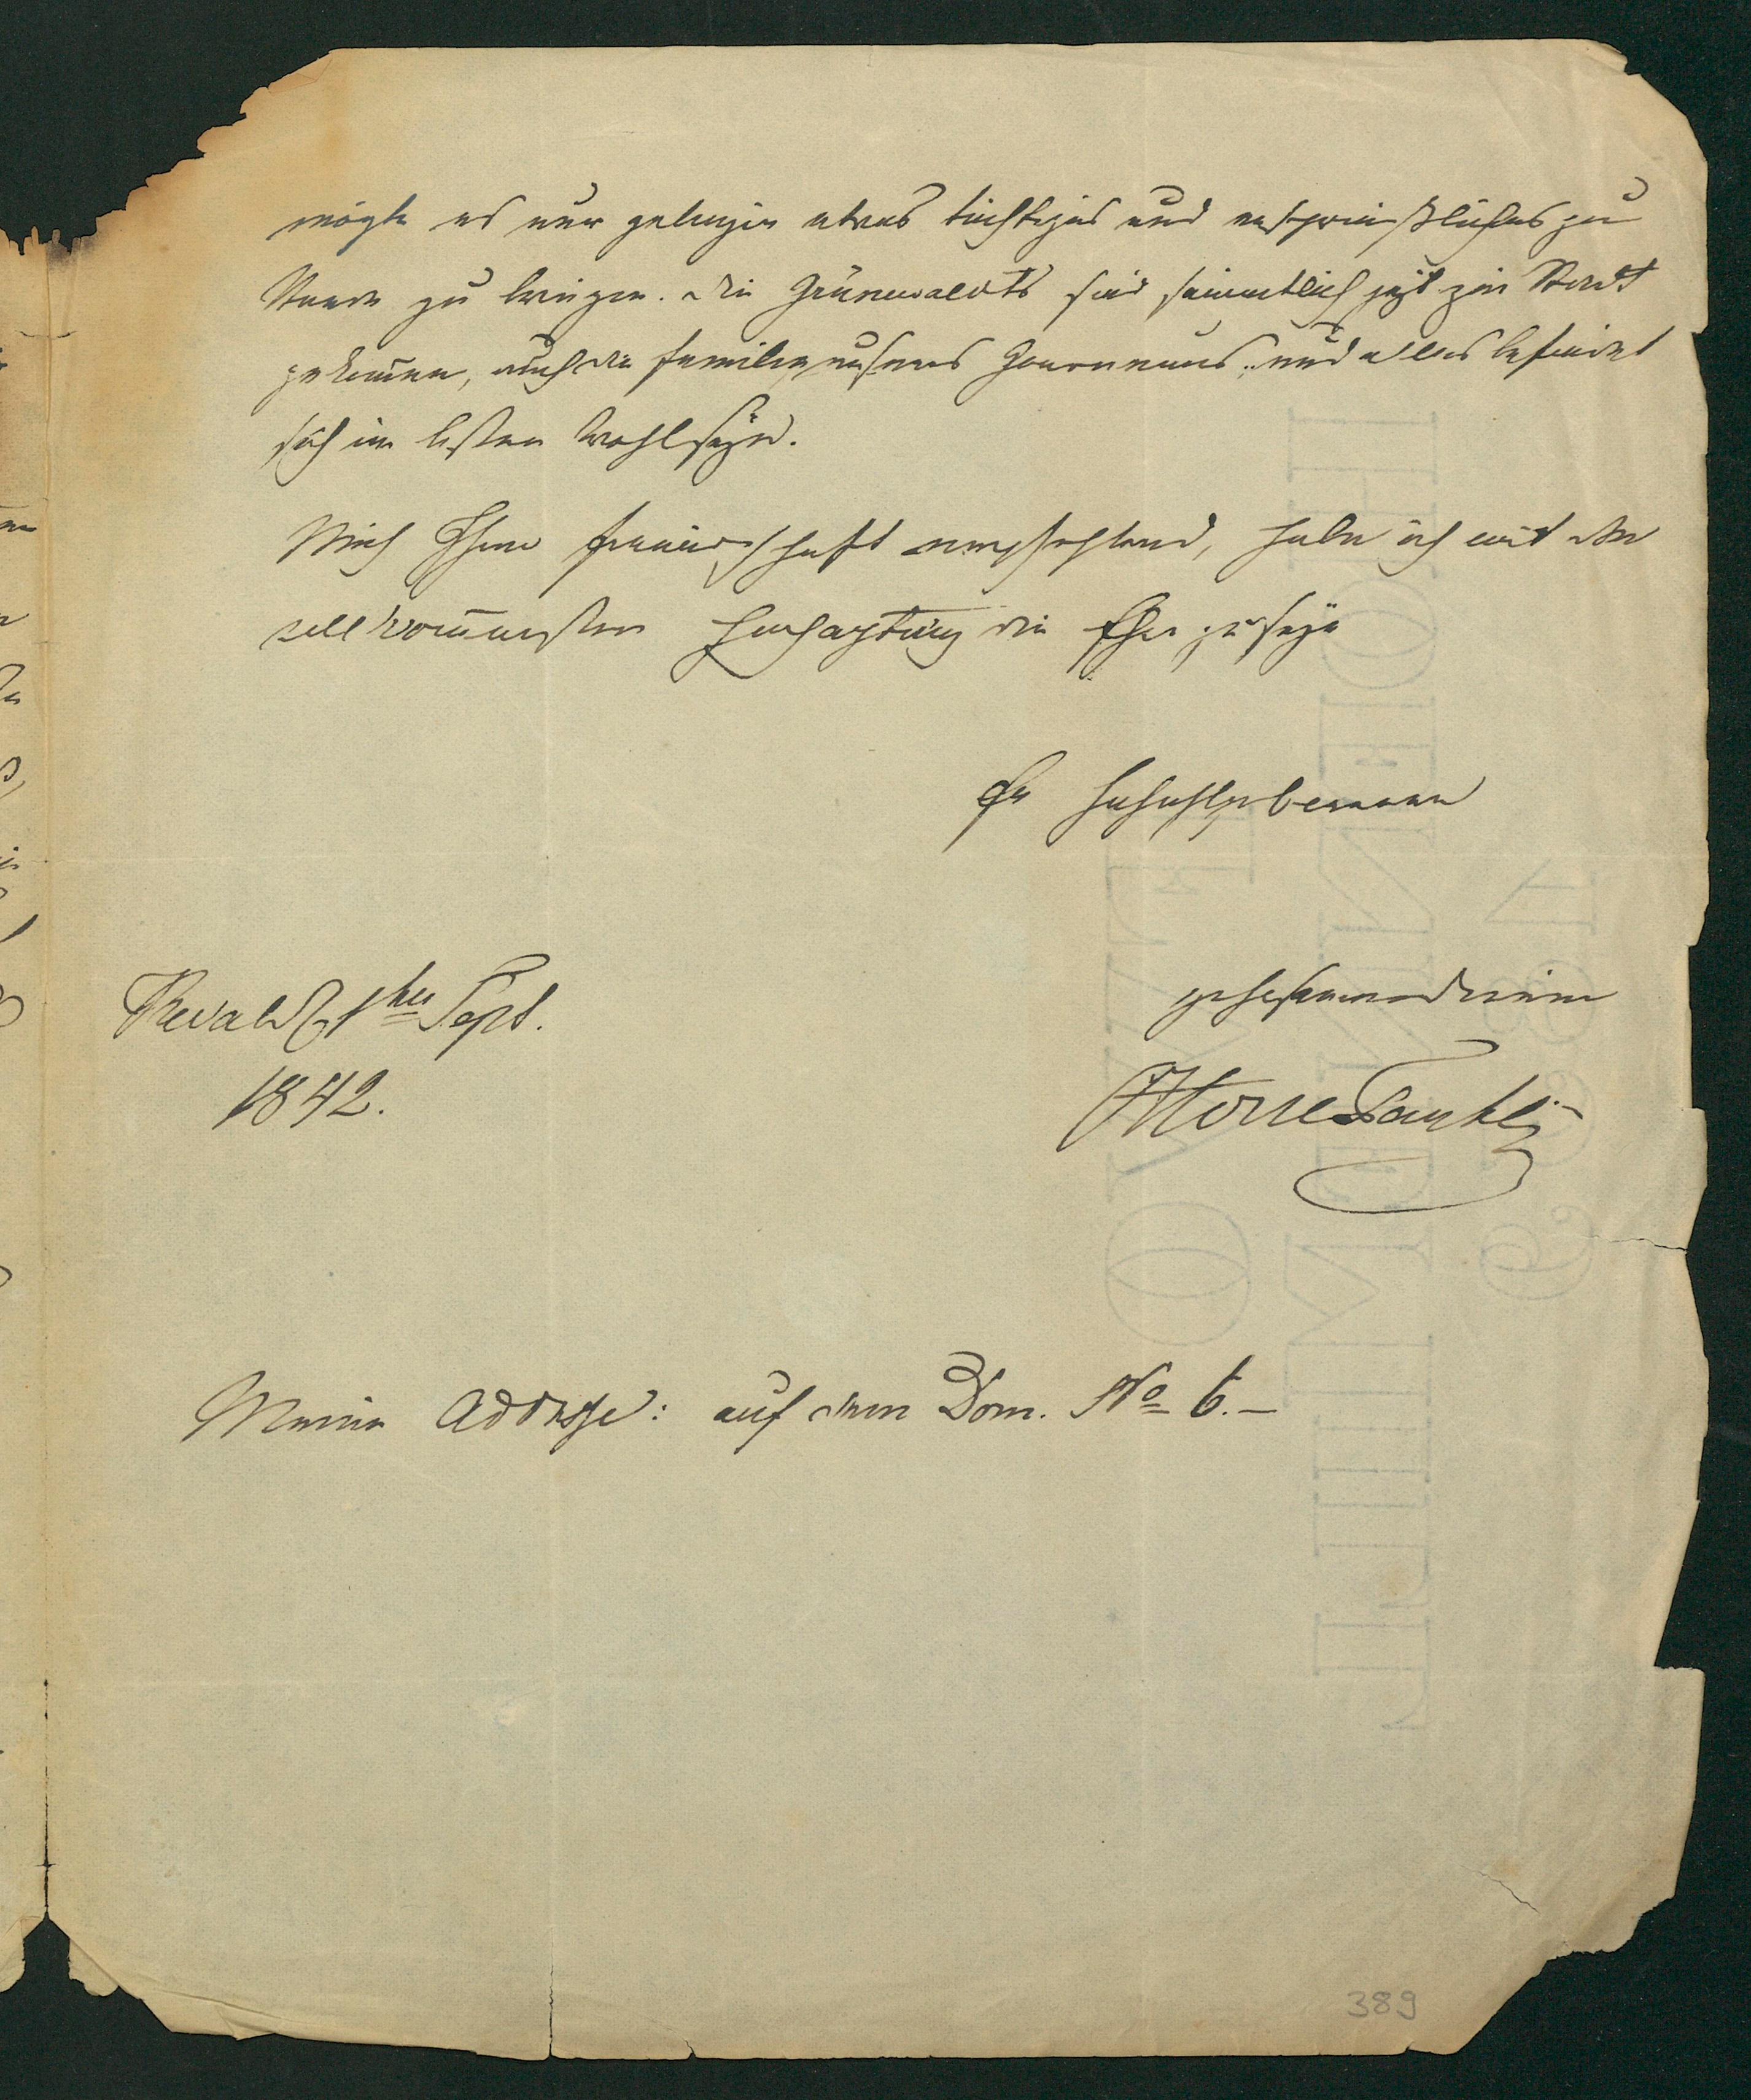 möge es nur gelingen etwas tüchtiges und ersprießliches zu
Stande zu bringen. Die Grünewaldts sind sämmtlich jetzt zur Stadt
gekommen, auch die Familie unseres Gouverneurs, und alles befindet
sich im besten Wohlseyn.
Mich Ihrer Freundschaft empfehlend, habe ich mit der
vollkommensten Hochachtung die Ehre zu seyn
Ew Hochwohlgeboren
Reval d 1ten Sept.
1842.
gehorsamer Diener
Meine Addresse: auf dem Dom. No 6.–
389